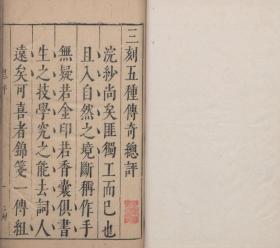 三刻五種傳奇總評
浣紗尚矣匪獨工而已也
且入自然之境斷稱作手
無疑若金印若香囊俱書
生之技學究之能去詞人
遠矣可喜者錦箋一傳組
總評
一